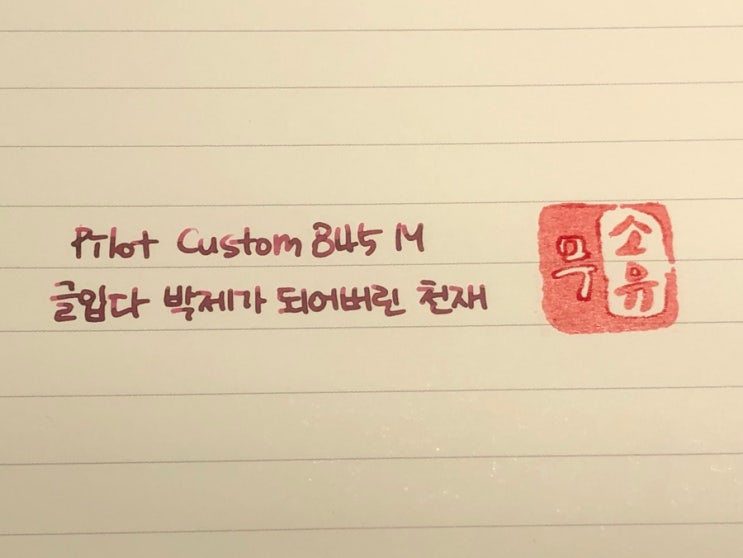 Pilot Custom 845 M
글입다 박제가 되어버린 천재
소유
무